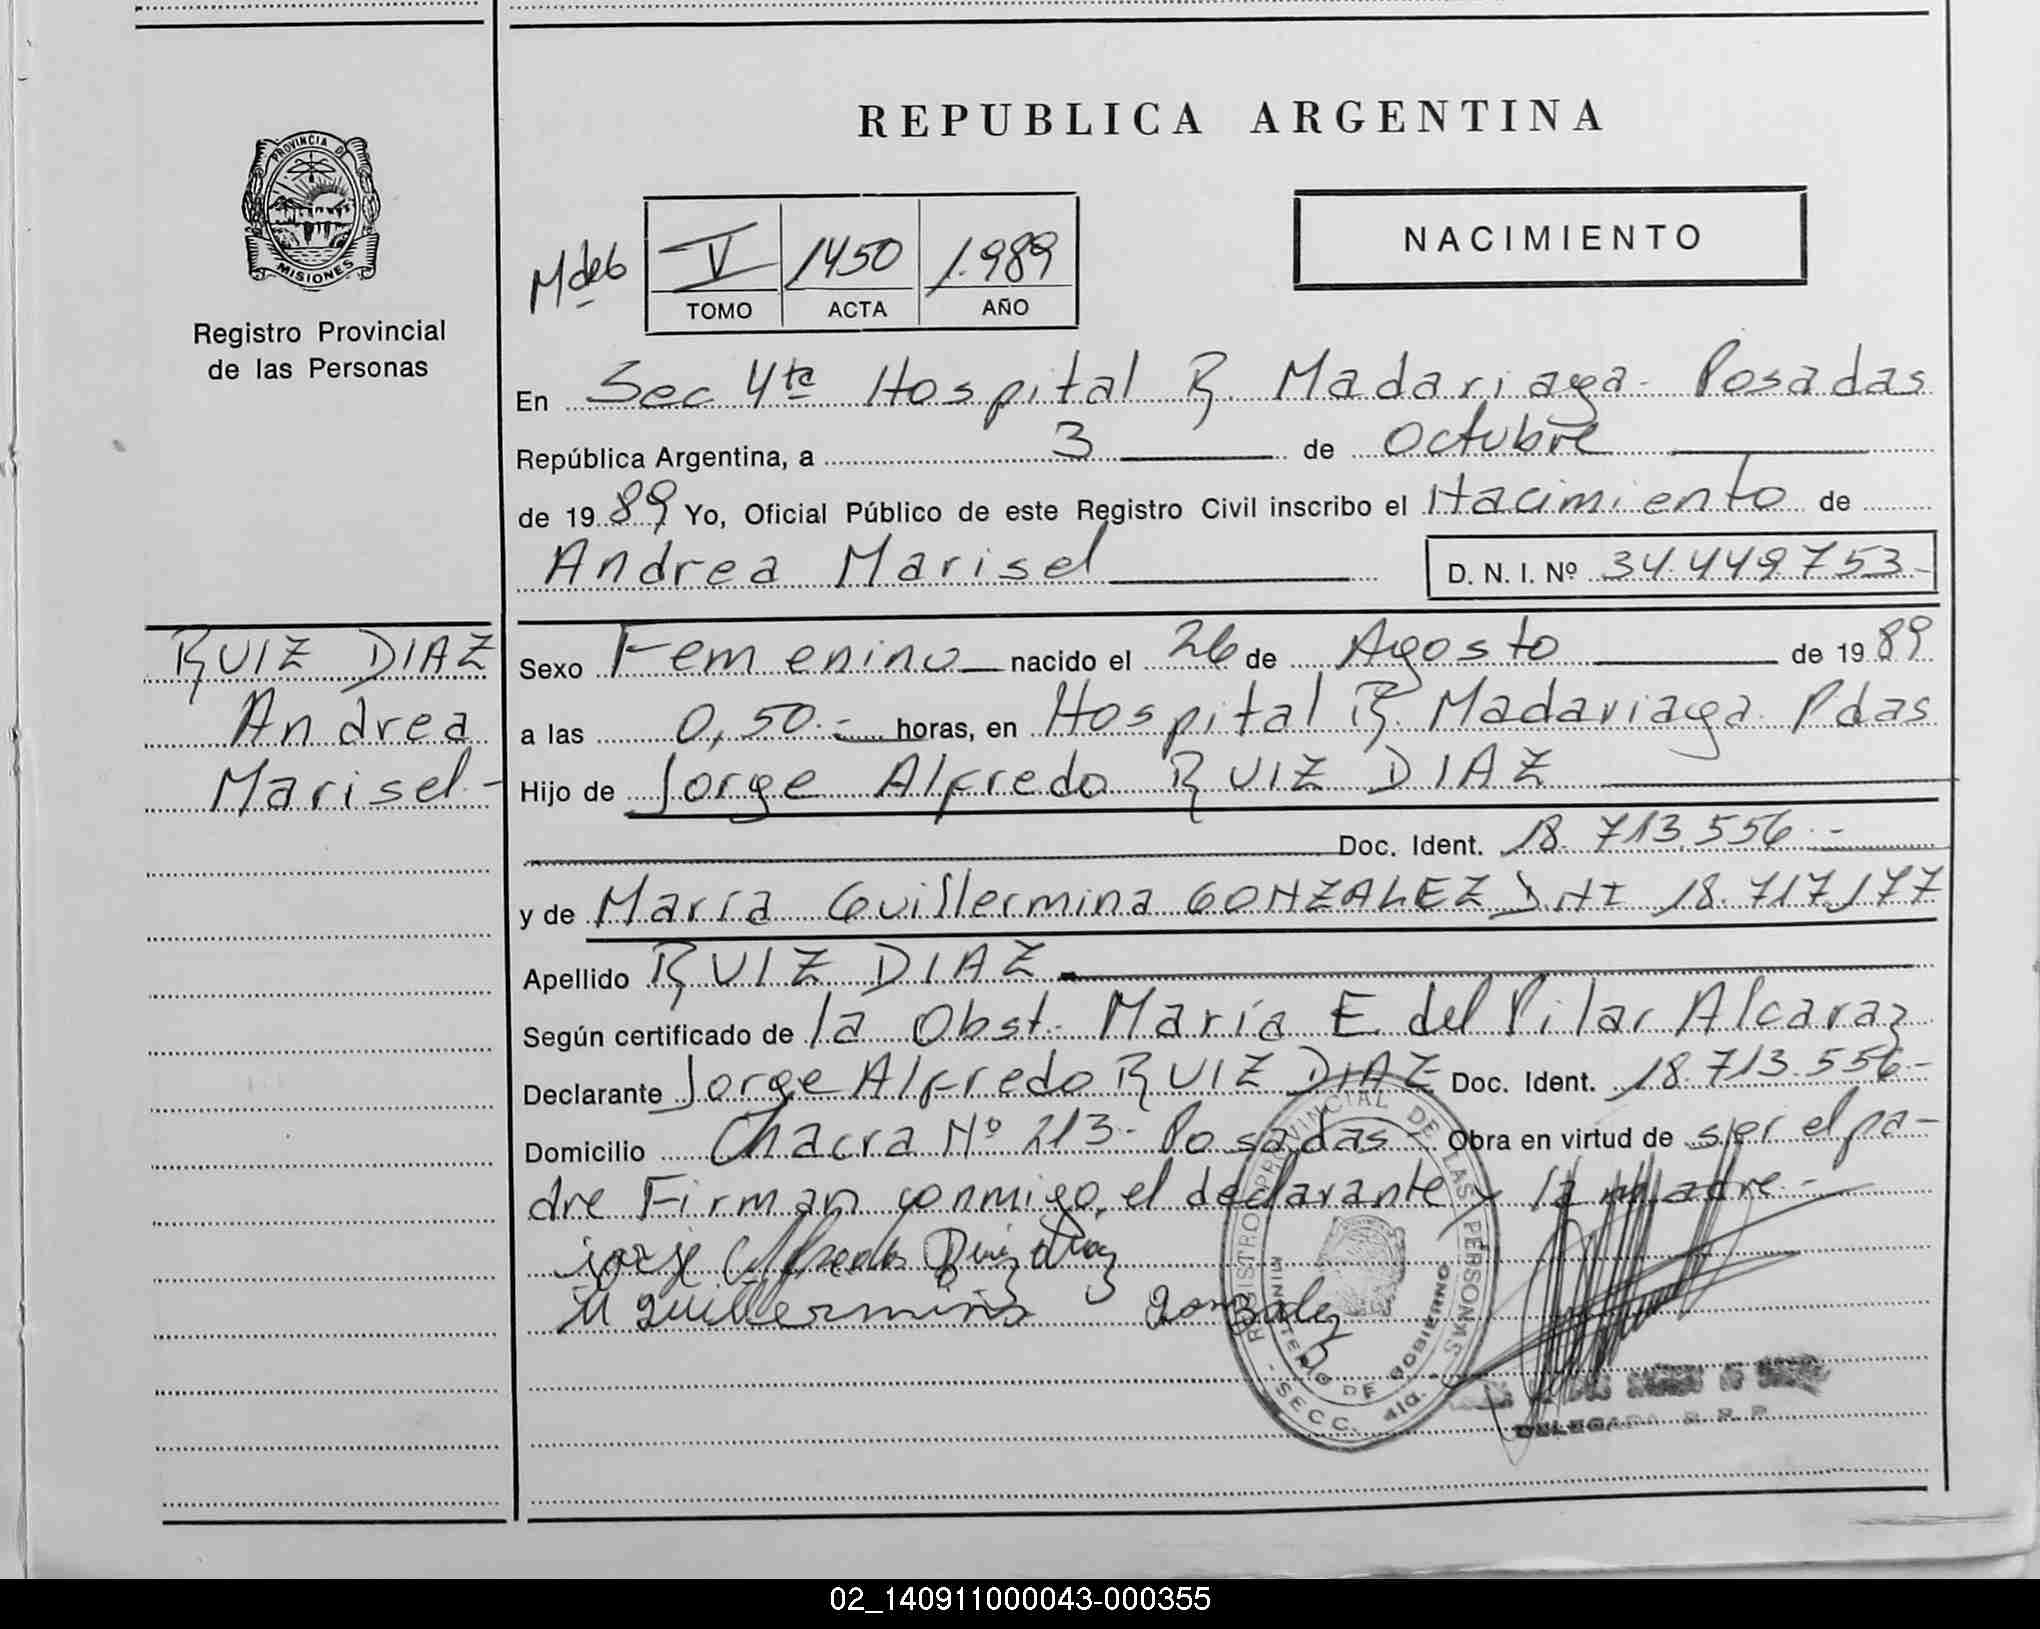 REPUBLICA ARGENTINA
PROVINCIA DE
MISIONES
Registro Provincial
de las Personas
NACIMIENTO
V 1450 1.989
TOMO ACTA AÑO
En Sec 4ta Hospital R. Madariaga - Posadas
República Argentina, a 3 de Octubre
de 1989 Yo, Oficial Público de este Registro Civil inscribo el Nacimiento de
Andrea Marisel D. N. I. Nº 34.449.753-
RUIZ DIAZ
Andrea
Marisel.-
Sexo Femenino nacido el 26 de Agosto de 1989
a las 0,50.- horas, en Hospital R. Madariaga Pdas
Hijo de Jorge Alfredo RUIZ DIAZ
Doc. Ident. 18.713.556.-
y de María Guillermina GONZALEZ DNI 18.717.177
Apellido RUIZ DIAZ
Según certificado de la Obst. María E. del Pilar Alcaraz
Declarante Jorge Alfredo RUIZ DIAZ Doc. Ident. 18.713.556.-
Domicilio Chacra Nº 213- Posadas - Obra en virtud de ser el pa-
dre Firman conmigo, el declarante y la madre.-
jorje Alfredo Ruiz diaz
M guillermina gonzalez
REGISTRO PROVINCIAL DE LAS PERSONAS
MINISTERIO DE GOBIERNO
- SECC. 4ta. -
DELEGADA R. P. P.
02_140911000043-000355